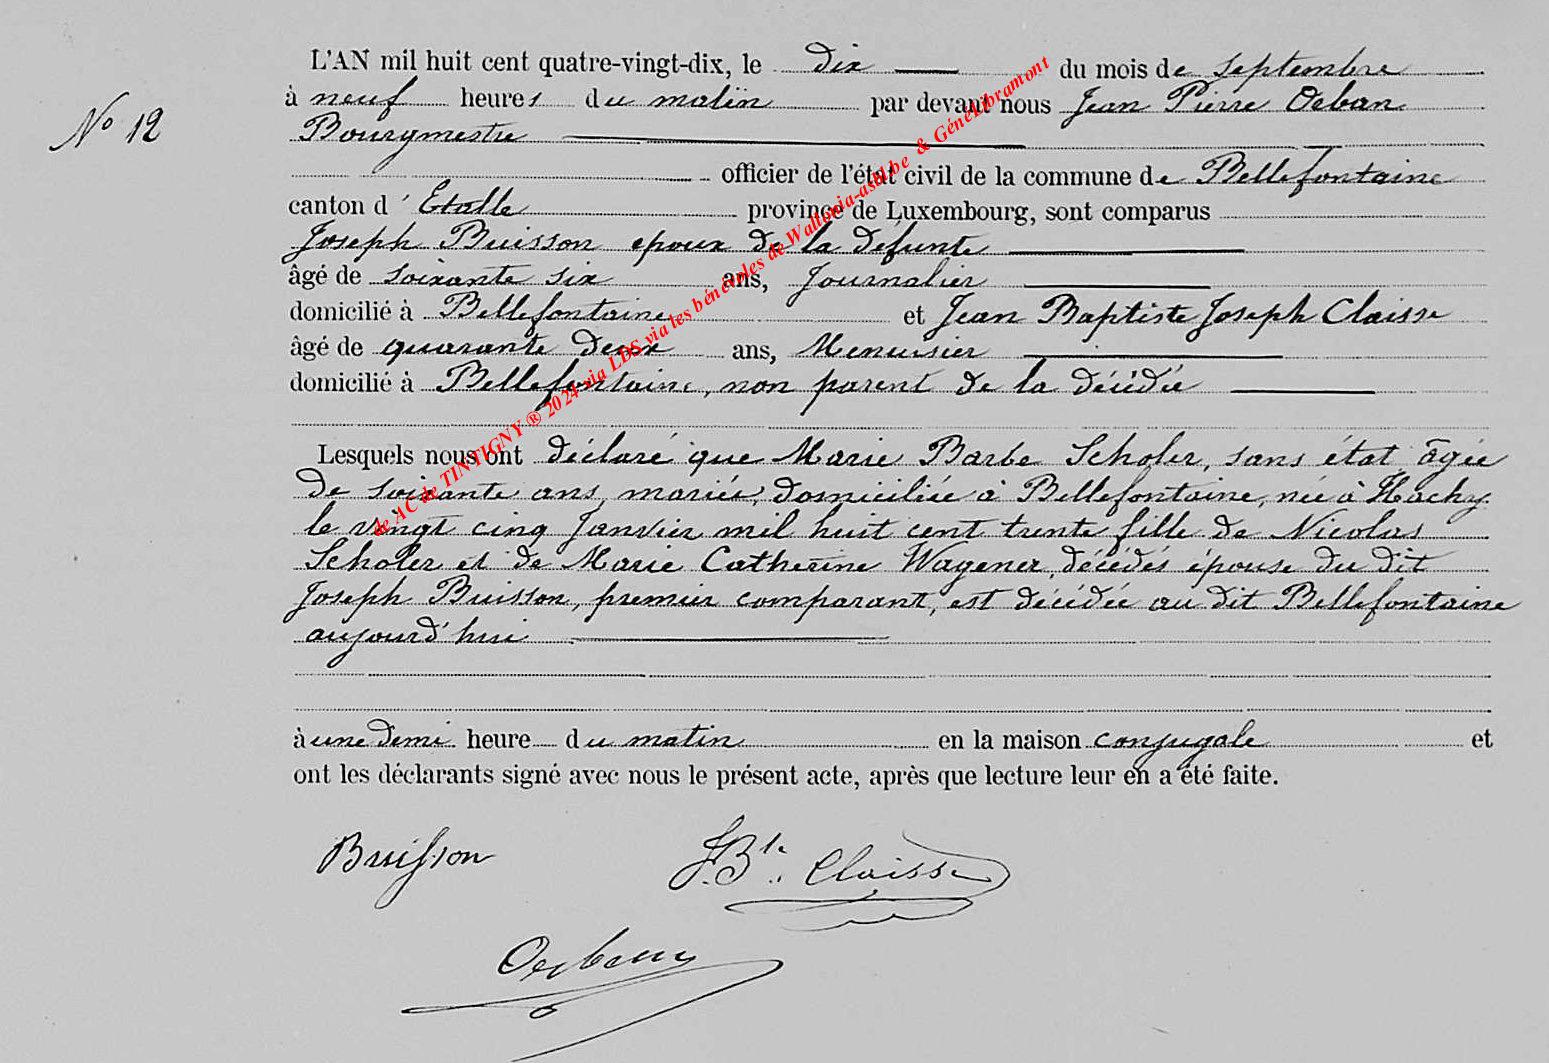 L'AN mil huit cent quatre-vingt-dix, le dix du mois de septembre
à neuf heures du matin par devant nous Jean Pierre Orban
Nº 12
Bourgmestre
officier de l'état civil de la commune de Bellefontaine
canton d'Etalle province de Luxembourg, sont comparus
Joseph Buisson epoux de la défunte
âgé de soixante six ans, Journalier
domicilié à Bellefontaine et Jean Baptiste Joseph Claisse
âgé de quarante deux ans, Menuisier
domicilié à Bellefontaine, non parent de la décédée
Lesquels nous ont déclaré que Marie Barbe Scholer, sans état âgée
de soixante ans, mariée, domiciliée à Bellefontaine, née à Hachy
le vingt cinq Janvier mil huit cent trente fille de Nicolas
Scholer et de Marie Catherine Wagener, décédés épouse du dit
Joseph Buisson, premier comparant, est décédée au dit Bellefontaine
aujourd'hui
à une demi heure du matin en la maison conjugale et
ont les déclarants signé avec nous le présent acte, après que lecture leur en a été faite.
Buisson
J. Bte. Claisse
Orban
de AC de TINTIGNY ® 2024 via LDS via les bénévoles de Wallonia-asbl.be & GénéLibramont